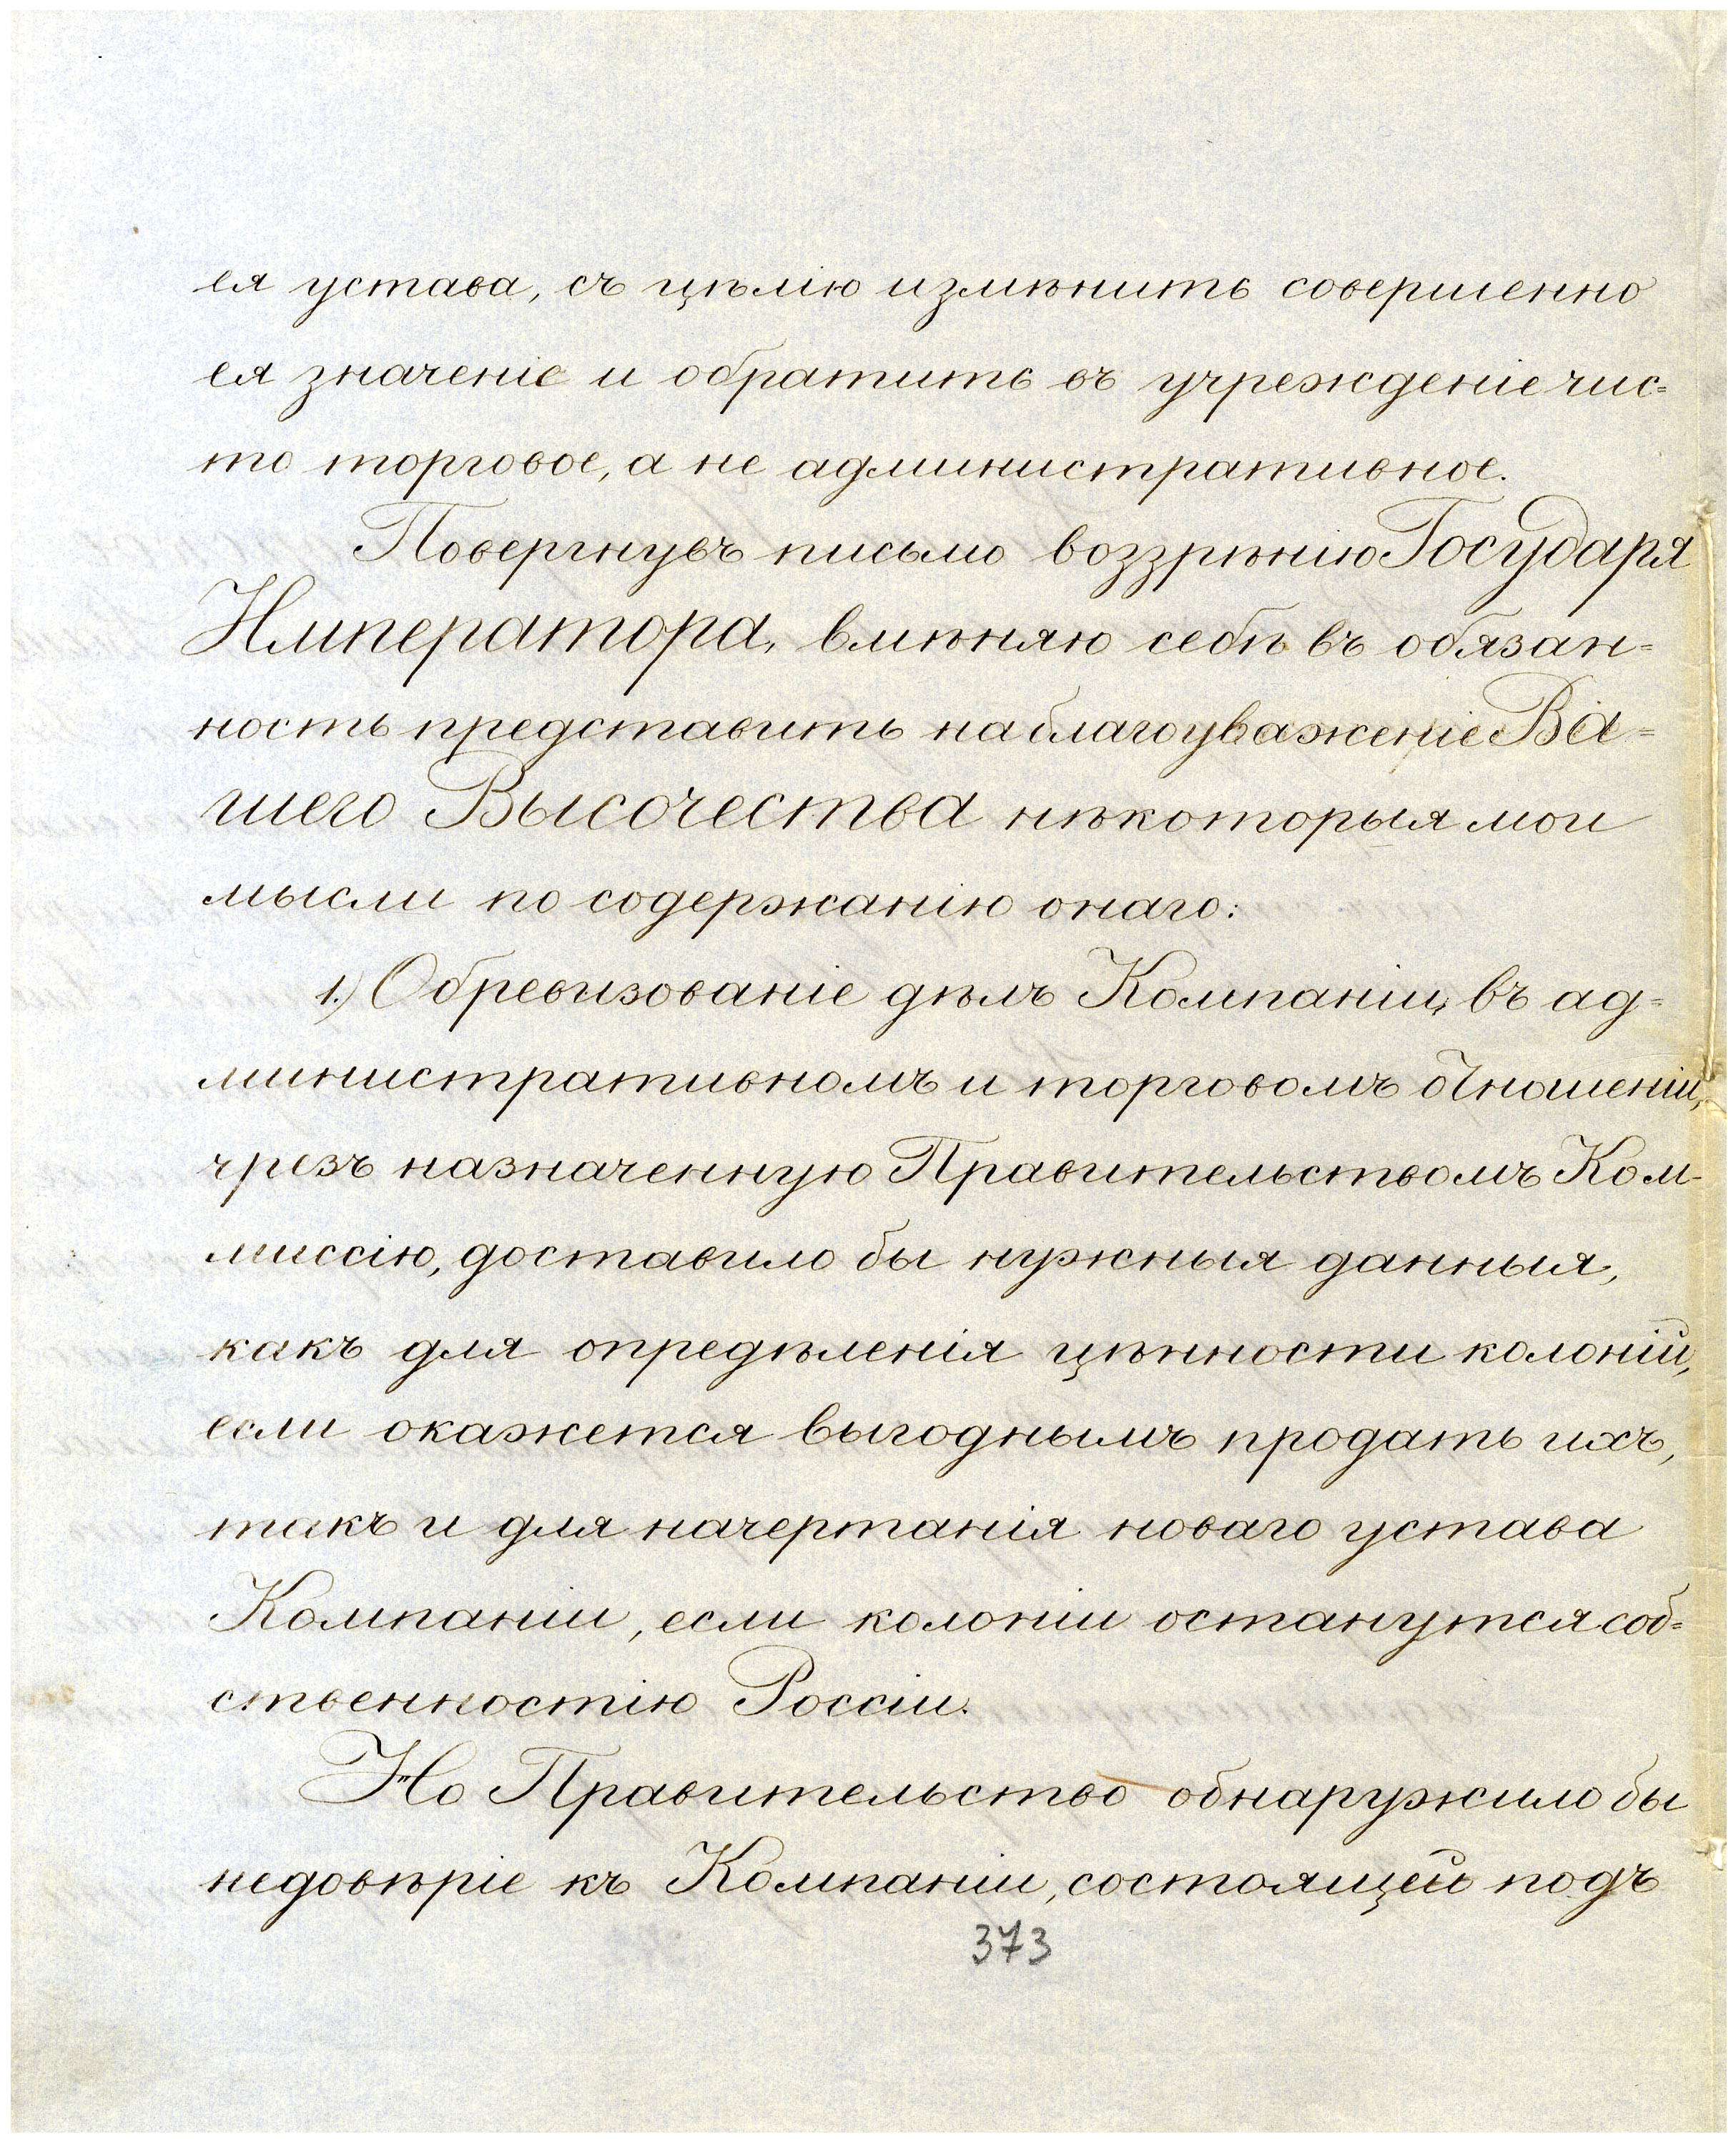 ея устава, съ цѣлію измѣнить совершенно
ея значеніе и обратить въ учрежденіе чис=
то торговое, а не административное.
Повергнувъ письмо воззрѣнію Государя
Императора, вмѣняю себѣ въ обязан=
ность представить на благоуваженіе Ва=
шего Высочества нѣкоторыя мои
мысли по содержанію онаго:
1.) Обревизованіе дѣлъ Компаніи, въ ад=
министративномъ и торговомъ отношеніи,
чрезъ назначенную Правительствомъ Ком-
миссію, доставило бы нужныя данныя,
какъ для опредѣленія цѣнности колоній,
если окажется выгоднымъ продать ихъ,
такъ и для начертанія новаго устава
Компаніи, если колоніи останутся соб=
ственностію Россіи.
Но Правительство обнаружило бы
недовѣріе къ Компаніи, состоящей подъ
373